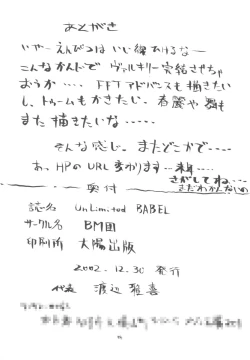 あとがき
いやーえんぴつはいい線おけるなー
こんなかんじで ヴァルキリー完結させちゃ
おうか・・・。FFTアドバンスも描きたい
し、トゥームもかきたし。春麗や
また描きたいな・・・・・
そんな感じ。またどこかで・・・・
あ、HPのURL変わります…
さがしてね・・・
奥付
誌名 UnLimited BABEL
サークル名 BM団
印刷所 大陽出版
2002.12.30 発行
代表 渡辺 雅喜